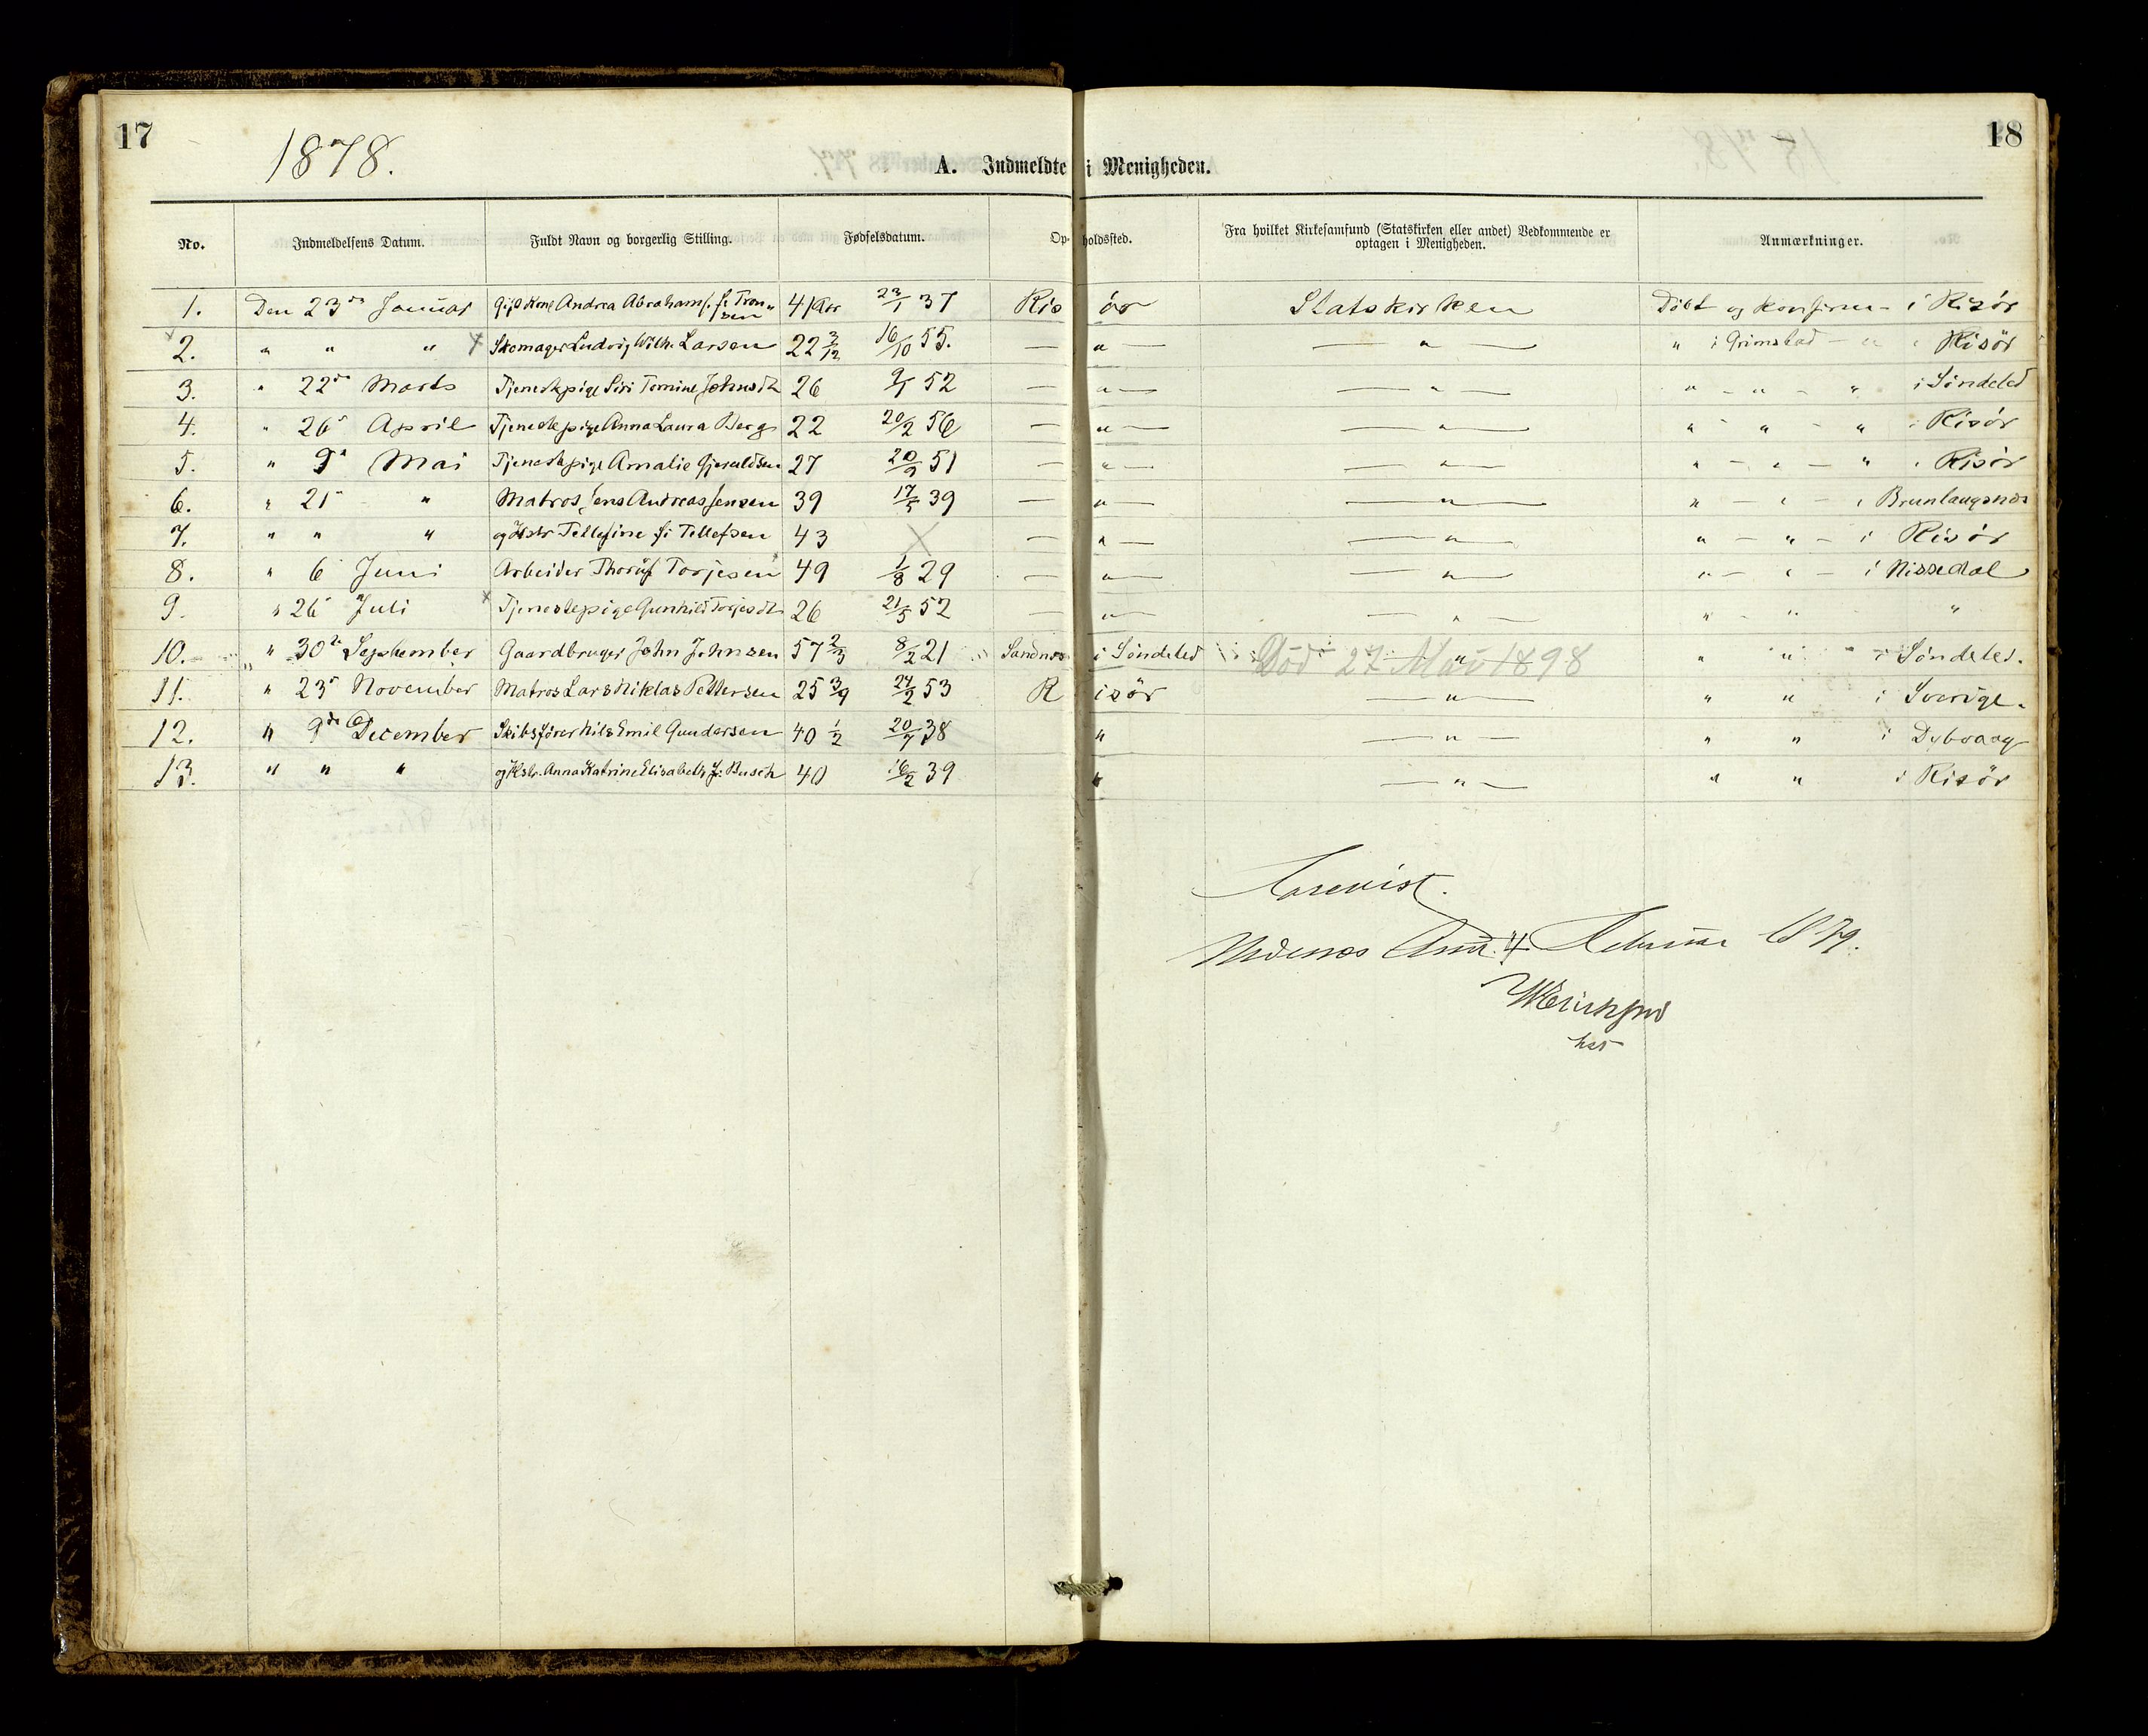 17
1878.
A. Indmeldte i Menigheden.
18
No. Indmeldelsens Datum. Fuldt Navn og borgerlig Stilling. Fødselsdatum. Opholdssted. Fra hvilket Kirkesamfund (Statskirken eller andet) Vedkommende er optagen i Menigheden. Anmærkninger.
1. Den 23de Januar Gift Kone Andrea Abrahams. f: Tronsen 41 Aar 23/1 37 Risör Statskirken Döbt og Konfirm- i Risör
2. " " " Skomager Ludvig Wilh. Larsen 22 3/12 16/10 55. — " — — " — " i Grimstad — " i Risör
3. " 22de Marts Tjenestepige Siri Tomine Johnsdt 26 9/1 52 — " — — " — " — " — " i Söndeled
4. " 26 April Tjenestepige Anna Laura Berg 22 20/2 56 — " — — " — " — " — " i Risör
5. " 9 Mai Tjenestepige Amalie Gjeruldsen 27 20/9 51 — " — — " — " — " — " i Risör
6. " 21 " Matros Jens Andreas Jensen 39 17/5 39 — " — — " — " — " — i Brunlaugsnæs
7. " " " og Hstr Tellefine f: Tellefsen 43 X — " — — " — " — " — i Risör
8. " 6 Juni Arbeider Thorulf Torjesen 49 1/8 29 — " — — " — " — " — i Nissedal
9. " 26 Juli Tjenestepige Gunhild Torjesdt 26 21/5 52 — " — — " — " — " "
10. " 30te September Gaardbruger John Johnsen 57 2/3 8/2 21 Sandnæs i Söndeled — " — Död 27 Mai 1898 " " i Söndeled.
11. " 23 November Matros Lars Niklas Pettersen 25 3/9 24/2 53 Risör — " — " " i Sverige.
12. " 9de December Skibsförer Nils Emil Gundersen 40 1/2 20/7 38 " — " — " " i Dybvaag
13. " " " og Hstr. Anna Katrine Elisabeth f: Busch 40 16/2 39 " — " — " " i Risör
Forevist.
Nedenæs Amt. 4 Februar 1879.